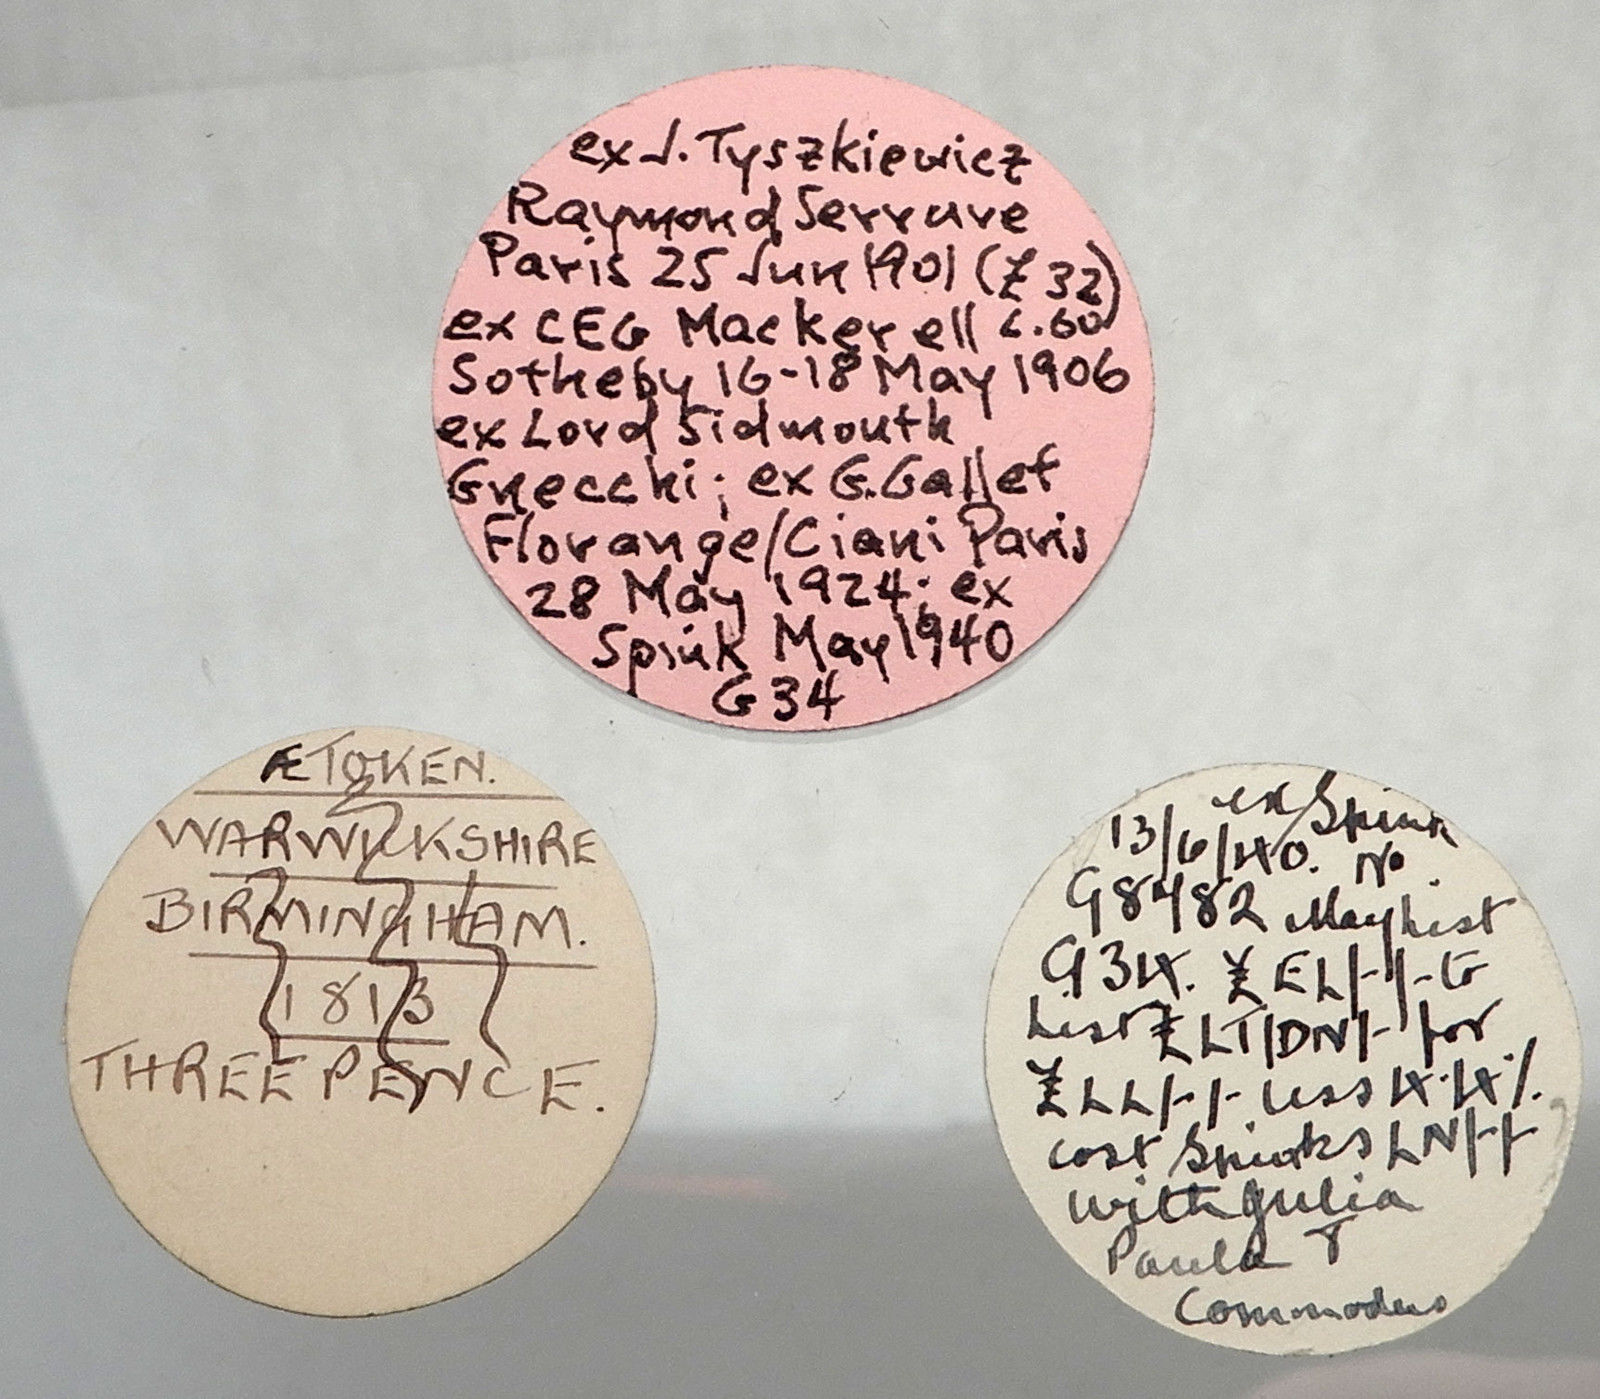 ex J. Tyszkiewicz
Raymond Serrure
Paris 25 Jun 1901 (£ 32)
ex CEG Mackerell c.60
Sotheby 16-18 May 1906
ex Lord Sidmouth
Gnecchi; ex G. Gallet
Florange/Ciani Paris
28 May 1924; ex
Spink May 1940
G34
Æ TOKEN.
WARWICKSHIRE
BIRMINGHAM.
1813
THREE PENCE.
ex Spink
13/6/40. No.
G8482 May list
G34. £ EL/-/-G
List £ LT/DN/- for
£ LL/-/- less 4.4%
cost Spinks LN/-/-
with Julia
Paula &
Commodus